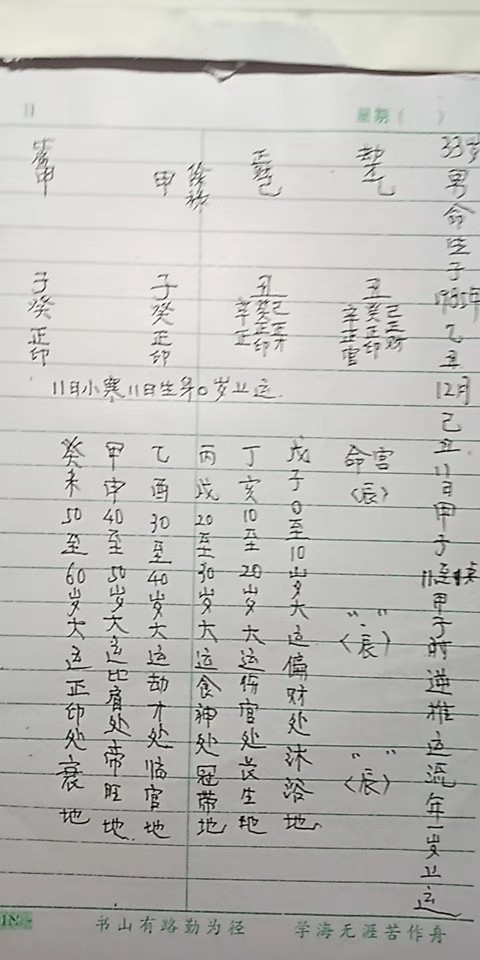 星期( )
33岁男命生于1985年乙丑12月己丑11日甲子11点甲子时逆推运流年一岁上运
劫 乙
丑
己正财
癸正印
辛正官
命宫〈辰〉
〃 〃〈辰〉
〃 〃〈辰〉
正财 己
丑
己正才
癸正印
辛正
甲
子
癸
正印
甲
子
癸
正印
11日小寒11日生算0岁上运.
戊子0至10岁大运偏财处沐浴地.
丁亥10至20岁大运伤官处长生地
丙戌20至30岁大运食神处冠带地
乙酉30至40岁大运劫才处临官地
甲申40至50岁大运比肩处帝旺地.
癸未50至60岁大运正印处衰地
书山有路勤为径 学海无涯苦作舟